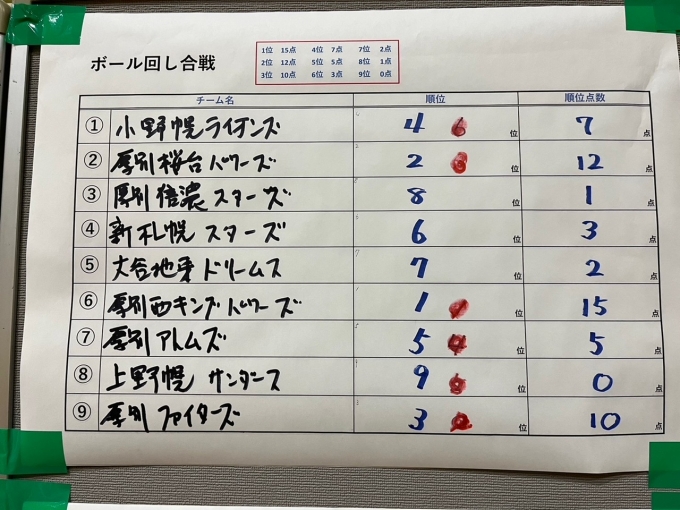 ボール回し合戦
1位 15点 4位 7点 7位 2点
2位 12点 5位 5点 8位 1点
3位 10点 6位 3点 9位 0点
チーム名 順位 順位点数
① 小野幌ライオンズ 4 位 7 点
② 厚別桜台パワーズ 2 位 12 点
③ 厚別信濃スターズ 8 位 1 点
④ 新札幌スターズ 6 位 3 点
⑤ 大谷地東ドリームス 7 位 2 点
⑥ 厚別西キングパワーズ 1 位 15 点
⑦ 厚別アトムズ 5 位 5 点
⑧ 上野幌サンダース 9 位 0 点
⑨ 厚別ファイターズ 3 位 10 点